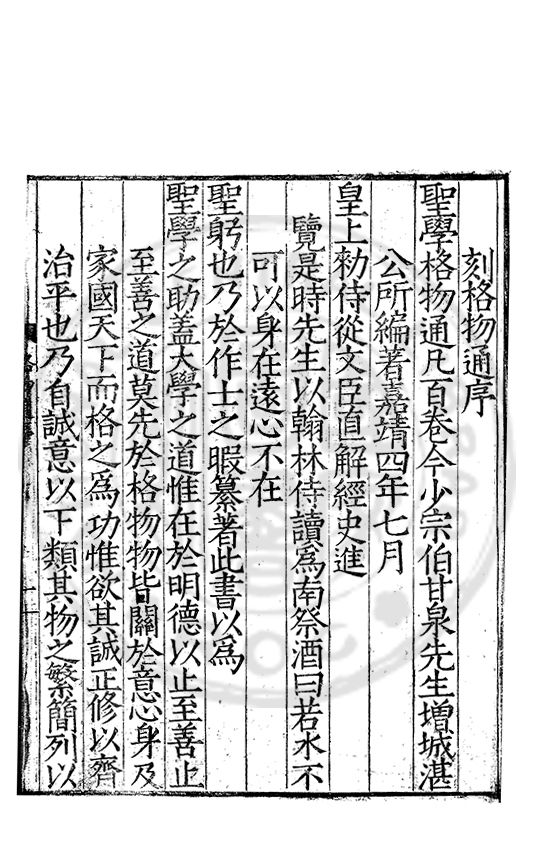 刻格物通序
聖學格物通凡百卷今少宗伯甘泉先生增城湛
公所編著嘉靖四年七月
皇上勑侍從文臣直解經史進
覽是時先生以翰林侍讀為南祭酒曰若水不
可以身在遠心不在
聖躬也乃於作士之暇纂著此書以為
聖學之助蓋大學之道惟在於明德以止至善止
至善之道莫先於格物物皆關於意心身及
家國天下而格之為功惟欲其誠正修以齊
治平也乃自誠意以下類其物之繁簡列以